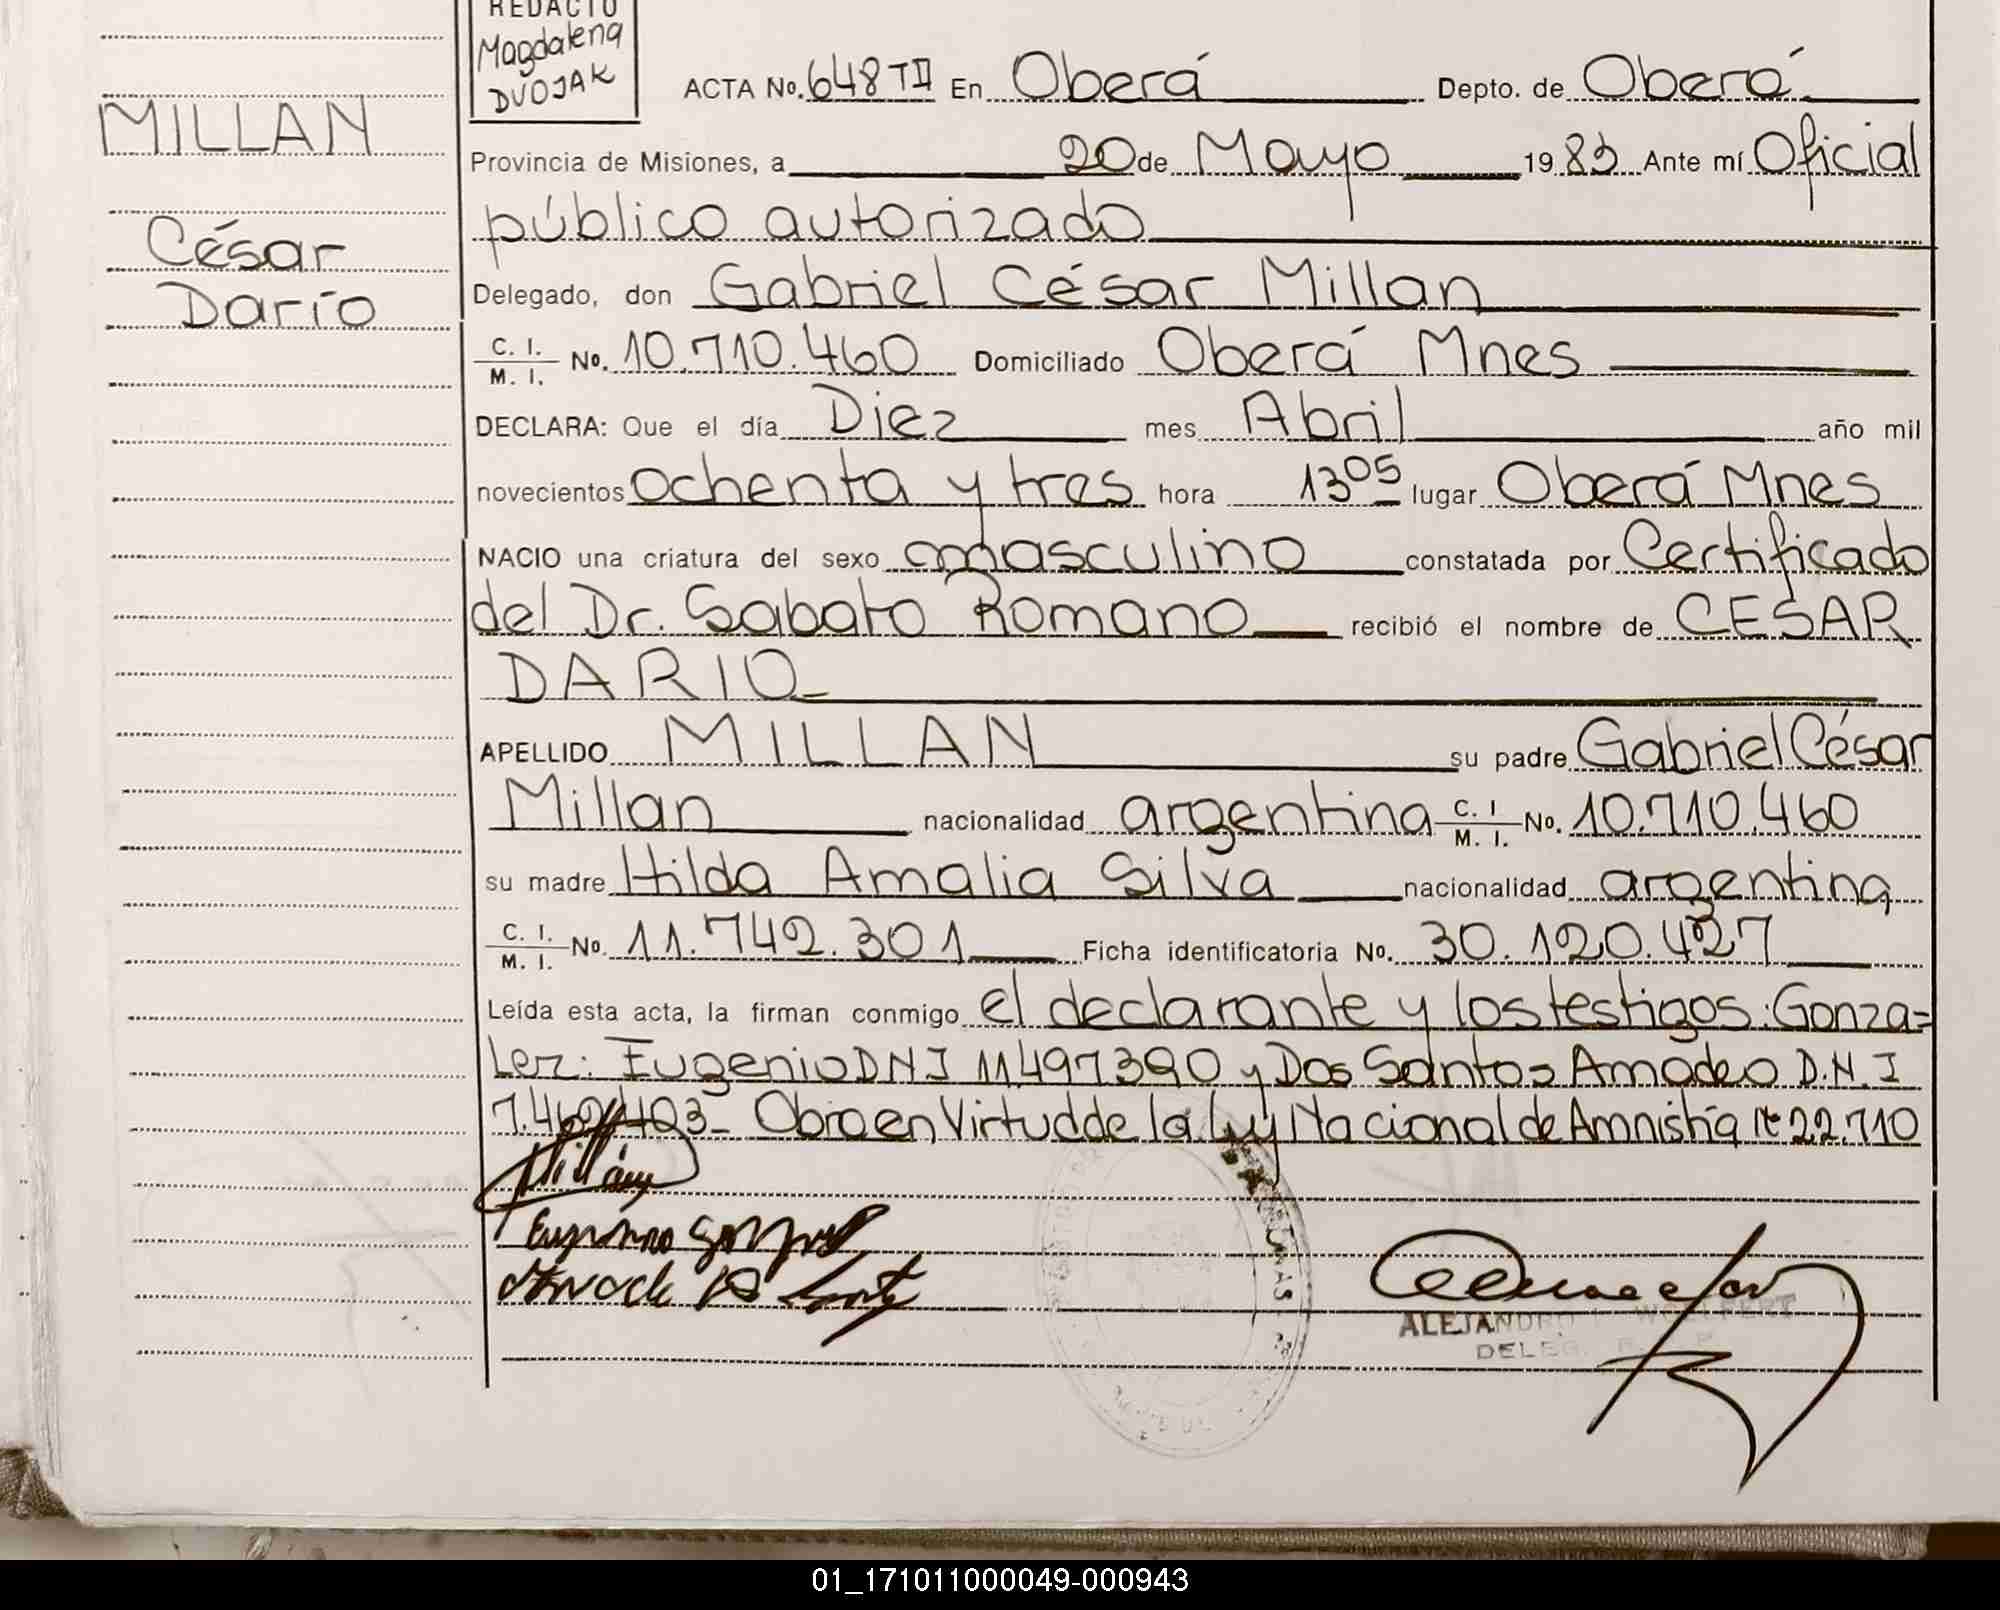 REDACTO
Magdalena
DVOJAK
MILLAN
César
Darío
ACTA No. 648 TII En Oberá Depto. de Oberá
Provincia de Misiones, a 20 de Mayo 1983 Ante mí Oficial
público autorizado
Delegado, don Gabriel César Millan
C. I. / M. I. No. 10.710.460 Domiciliado Oberá Mnes
DECLARA: Que el día Diez mes Abril año mil
novecientos ochenta y tres hora 13 05 lugar Oberá Mnes
NACIO una criatura del sexo masculino constatada por Certificado
del Dr. Sabato Romano recibió el nombre de CESAR
DARIO
APELLIDO MILLAN su padre Gabriel César
Millan nacionalidad argentina C. I / M. I. No. 10.710.460
su madre Hilda Amalia Silva nacionalidad argentina
C. I. / M. I. No. 11.742.301 Ficha identificatoria No. 30.120.427
Leída esta acta, la firman conmigo el declarante y los testigos: Gonza=
lez: Eugenio DNI 11497390 y Dos Santos Amadeo D.N.I
Obra en Virtud de la Ley Nacional de Amnistía Nº 22.710
Millán
ALEJANDRO WOLFERT
DELEG.
01_171011000049-000943